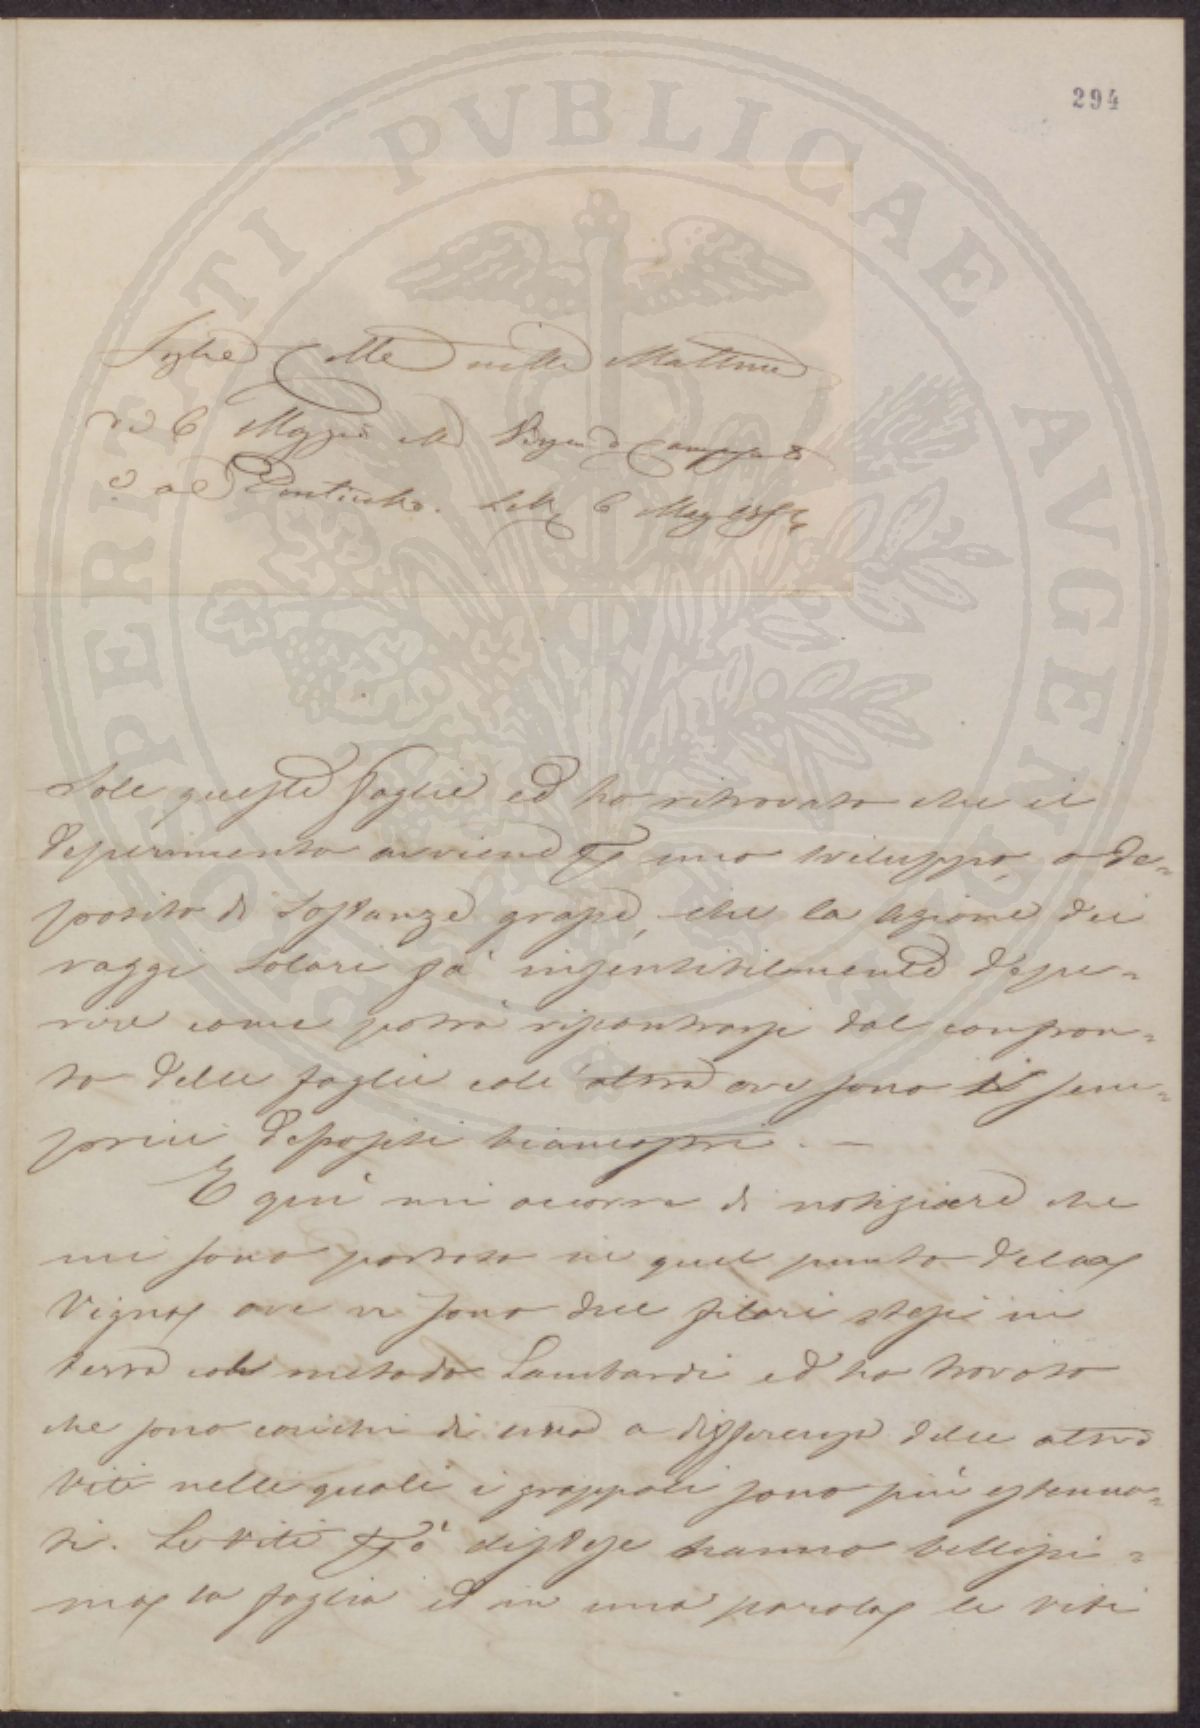 294
PROSPERITATI PVBLICAE AVGENDAE
Foglie Colte nella Mattina
6 Maggio
e al Ponticello. Li 6 Mag
sole queste foglie ed ho ritrovato che il
deperimento avviene p uno sviluppo, o de=
posito di sostanze grasse, che la azione dei
raggi solari fà insensibilmente depe=
rire come potrà riscontrarsi dal confron=
to delle foglie coll'altra ove sono i sem=
plici depositi biancastri. —
E quì mi occorre di notiziare che
mi sono portato in quel punto della
Vigna ove vi sono due filari stesi in
terra col metodo Lambardi ed ho trovato
che sono carichi di uva a differenza delle altre
viti nelle quali i grappoli sono più estenua=
ti. Le viti però distese hanno bellissi=
ma la foglia ed in una parola le viti